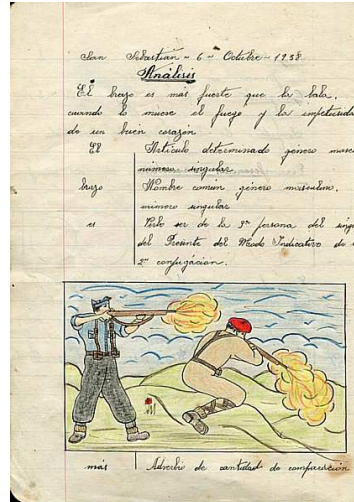 San Sebastián - 6 - Octubre - 1938
Análisis
El brazo es más fuerte que la bala,
cuando lo mueve el fuego y la impetuosida
de un buen corazón
El Artículo determinado genero masc
número singular
brazo Nombre comun género masculino,
número singular
es Verbo ser de la 3ª persona del sing
del Presente del Modo Indicativo de
2ª conjugácion.
más Adverbio de cantidad de comparación